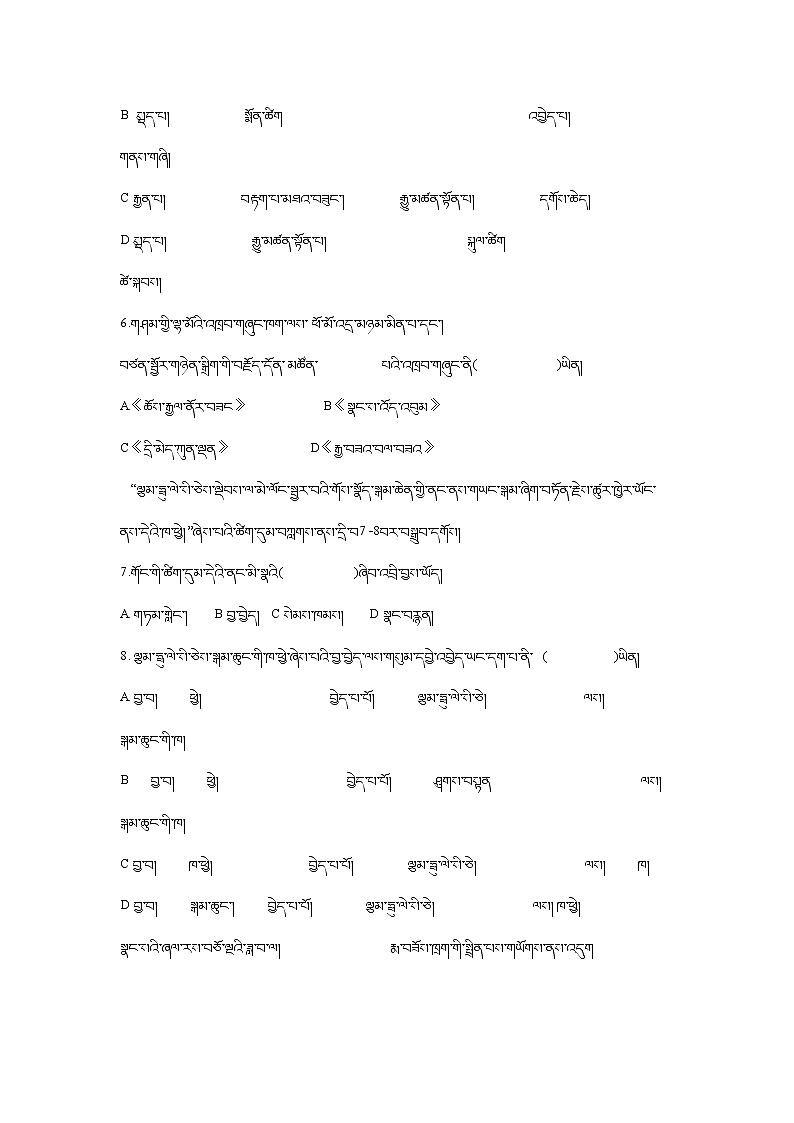 B སྤྲད་པ། སྨོན་ཚིག འབྱེད་པ།
གནས་གཞི།
C རྒྱན་པ། བརྟག་པ་མཐའ་བཟུང་། རྒྱུ་མཚན་སྟོན་པ། དགོས་ཆེད།
D སྤྲད་པ། རྒྱུ་མཚན་སྟོན་པ། སྐུལ་ཚིག
ཚེ་སྐབས།
6.གཤམ་གྱི་ལྷ་མོའི་འཁྲབ་གཞུང་ཁག་ལས་ ཕོ་མོ་འདྲ་མཉམ་མིན་པ་དང་།
བཙན་སྦྱོར་གཉེན་སྒྲིག་གི་བརྗོད་དོན་ མཚོན་ པའི་འཁྲབ་གཞུང་ནི( )ཡིན།
A《ཆོས་རྒྱལ་ནོར་བཟང》 B《སྣང་ས་འོད་འབུམ》
C《དྲི་མེད་ཀུན་ལྡན》 D《རྒྱ་བཟའ་བལ་བཟའ》
“ལྕམ་ཧྥུ་ལེ་སི་ཅེས་ལྡེབས་ལ་མེ་ལོང་སྦྱར་བའི་གོས་སྣོད་སྒམ་ཆེན་གྱི་ནང་ནས་གཡང་སྒམ་ཞིག་བཏོན་རྗེས་ཚུར་ཁྱེར་ཡོང་
ནས་དེའི་ཁ་ཕྱེ།”ཞེས་པའི་ཚིག་དུམ་བཀླགས་ནས་དྲི་བ7-8བར་བསྒྲུབ་དགོས།
7.གོང་གི་ཚིག་དུམ་དེའི་ནང་མི་སྣའི( )ཞིབ་འབྲི་བྱས་ཡོད།
A གཏམ་གླེང་། B བྱ་བྱེད། C སེམས་ཁམས། D སྣང་བརྙན།
8. ལྕམ་ཧྥུ་ལེ་སི་ཅེས་སྒམ་ཆུང་གི་ཁ་ཕྱེ་ཞེས་པའི་བྱ་བྱེད་ལས་གསུམ་དབྱེ་འབྱེད་ཡང་དག་པ་ནི་ ( )ཡིན།
A བྱ་བ། ཕྱེ། བྱེད་པ་པོ། ལྕམ་ཧྥུ་ལེ་སི་ཅེ། ལས།
སྒམ་ཆུང་གི་ཁ།
B བྱ་བ། ཕྱེ། བྱེད་པ་པོ། ཤུགས་བསྟན ལས།
སྒམ་ཆུང་གི་ཁ།
C བྱ་བ། ཁ་ཕྱེ། བྱེད་པ་པོ། ལྕམ་ཧྥུ་ལེ་སི་ཅེ། ལས། ཁ།
D བྱ་བ། སྒམ་ཆུང་། བྱེད་པ་པོ། ལྕམ་ཧྥུ་ལེ་སི་ཅེ། ལས། ཁ་ཕྱེ།
སྣང་སའི་ཞལ་རས་བཅོ་ལྔའི་ཟླ་བ་ལ། རྨ་བཟོས་ཁྲག་གི་སྤྲིན་པས་གཡོགས་ནས་འདུག